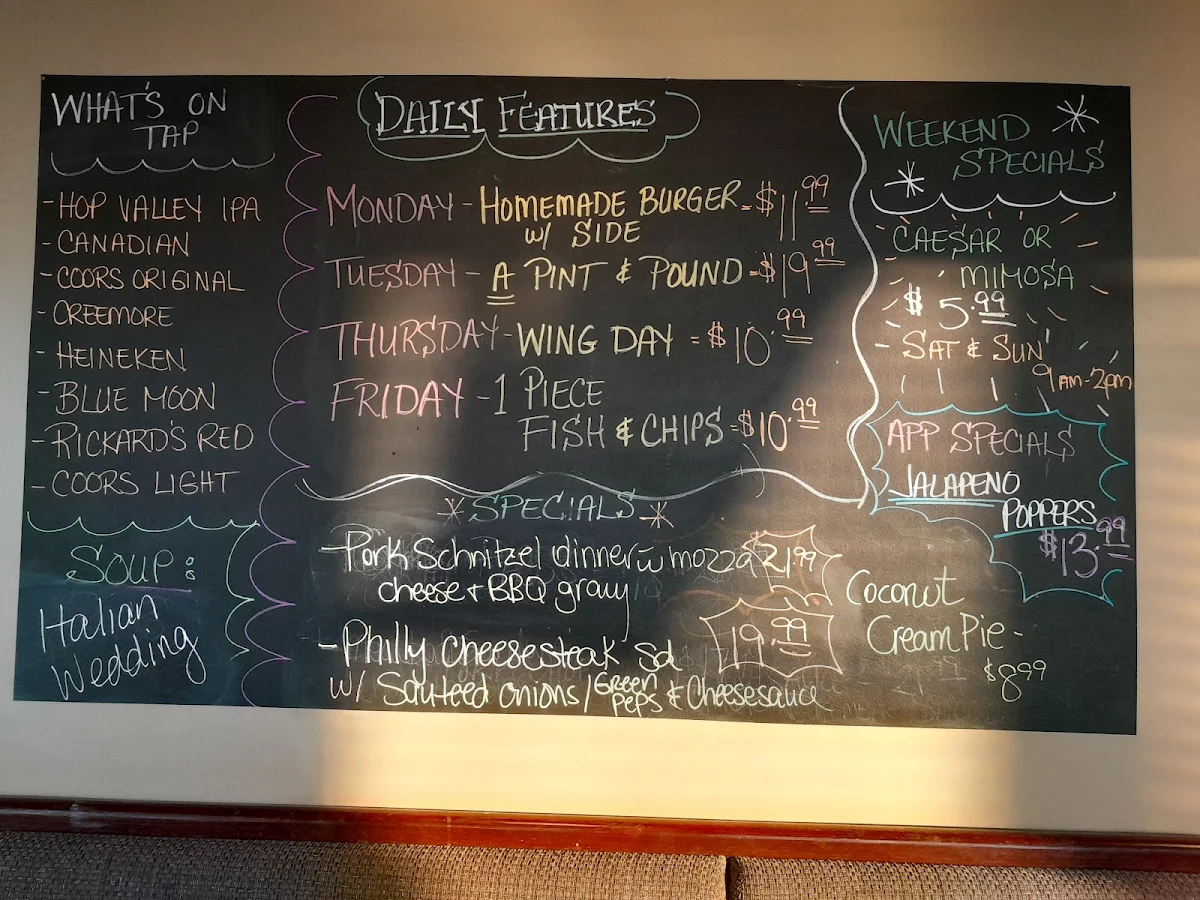 WHAT'S ON
TAP
- HOP VALLEY IPA
- CANADIAN
- COORS ORIGINAL
- CREEMORE
- HEINEKEN
- BLUE MOON
- RICKARD'S RED
- COORS LIGHT
SOUP:
Italian
Wedding
DAILY FEATURES
MONDAY - HOMEMADE BURGER = $11.99
w/ SIDE
TUESDAY - A PINT & POUND = $19.99
THURSDAY - WING DAY = $10.99
FRIDAY - 1 PIECE
FISH & CHIPS = $10.99
SPECIALS
- Pork Schnitzel dinner w mozza 21.99
cheese + BBQ gravy
- Philly cheesesteak sd 19.99
w/ Sauteed onions / Green peps & Cheesesauce
WEEKEND
SPECIALS
CAESAR OR
MIMOSA
$5.99
- SAT & SUN
9 AM - 2pm
APP SPECIALS
JALAPENO
POPPERS
$13.99
Coconut
Cream Pie -
$8.99